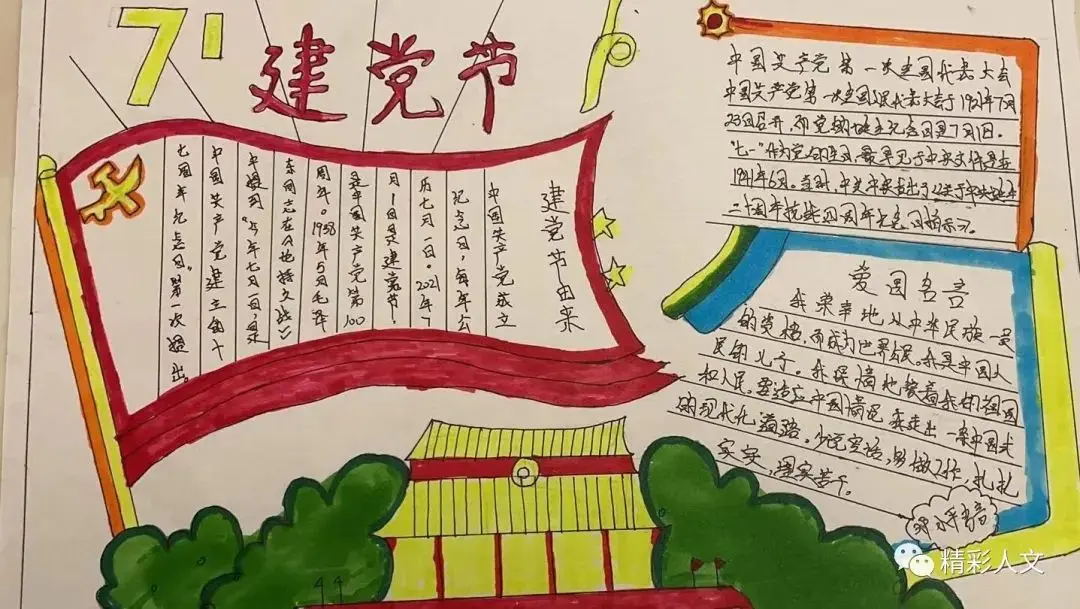 71
建党节
建党节由来
中国共产党成立
纪念日，每年公
历七月一日。2021年7
月1日是建党节！
是中国共产党第100
周年。1938年5月毛泽
东同志在《论持久战》
中提到“今年七月一日，是
中国共产党建立的十
七周年纪念日”第一次提出。
中国共产党第一次全国代表大会
中国共产党第一次全国代表大会于1921年7月
23日召开，而党的诞生纪念日是7月1日。
“七一”作为党的生日，最早见于中央文件是在
1941年6月。当时，中共中央发出了《关于中共诞生
二十周年抗战四周年纪念日指示》。
爱国名言
我荣幸地从中华民族一员
的资格，而成为世界公民。我是中国人
民的儿子。我深情地爱着我的祖国
和人民。要适应中国情况，走出一条中国式
的现代化道路。少说空话，多做工作，扎扎
实实，埋头苦干。
精彩人文